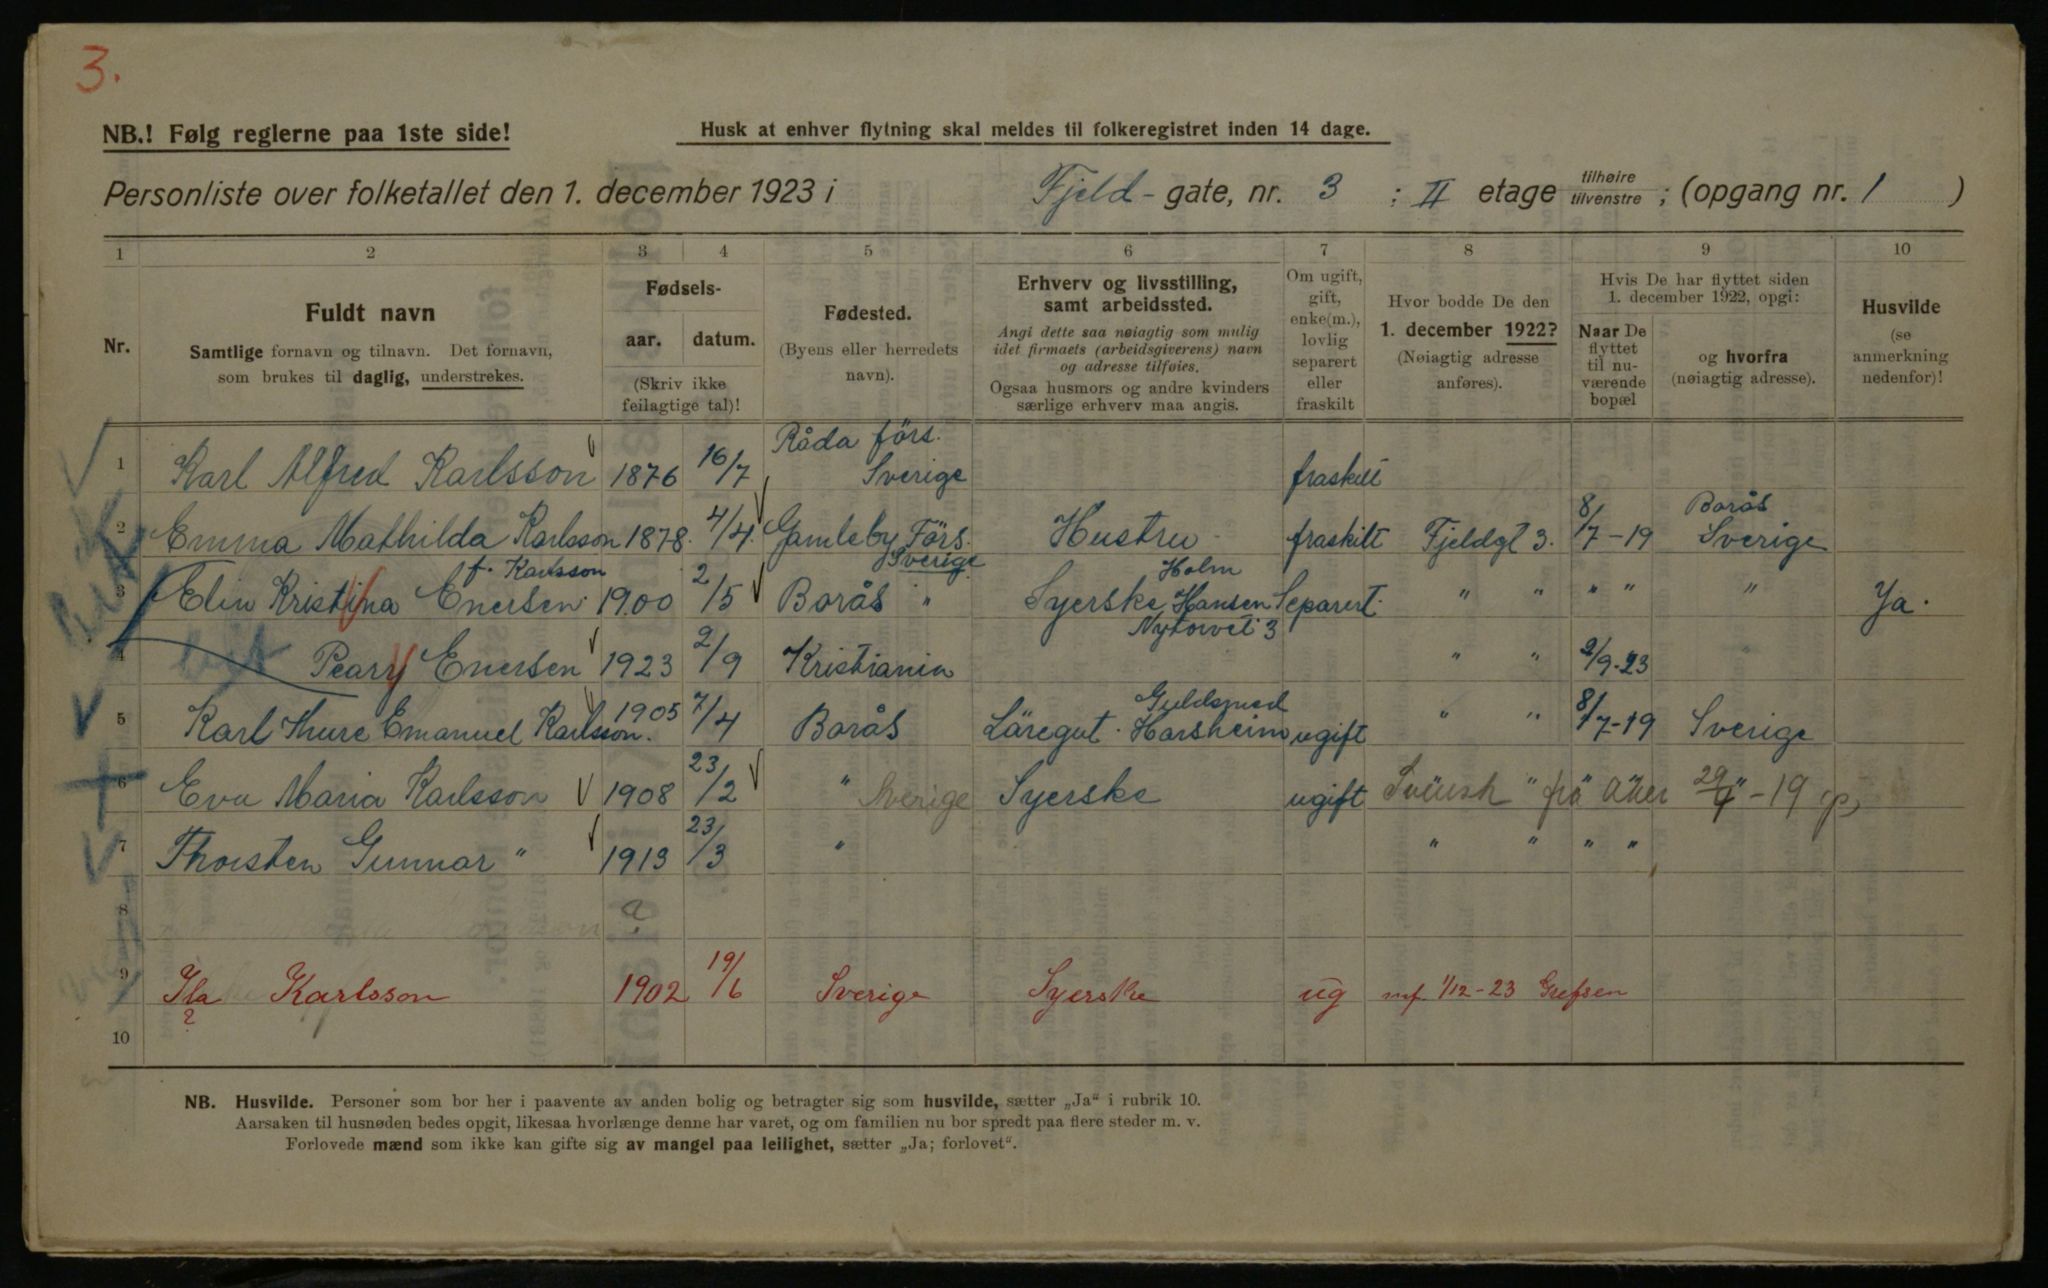 3.
NB.! Følg reglerne paa 1ste side!
Husk at enhver flytning skal meldes til folkeregistret inden 14 dage.
Personliste over folketallet den 1. december 1923 i Fjeld- gate, nr. 3 : II etage tilhøire/tilvenstre ; (opgang nr. 1 )
1 2 3 4 5 6 7 8 9 10
Nr.
Fuldt navn
Samtlige fornavn og tilnavn. Det fornavn,
som brukes til daglig, understrekes.
Fødsels-
aar. datum.
(Skriv ikke
feilagtige tal)!
Fødested.
(Byens eller herredets
navn).
Erhverv og livsstilling,
samt arbeidssted.
Angi dette saa nøiagtig som mulig
idet firmaets (arbeidsgiverens) navn
og adresse tilføies.
Ogsaa husmors og andre kvinders
særlige erhverv maa angis.
Om ugift,
gift,
enke(m.),
lovlig
separert
eller
fraskilt
Hvor bodde De den
1. december 1922?
(Nøiagtig adresse
anføres).
Hvis De har flyttet siden
1. december 1922, opgi:
Naar De
flyttet
til nu-
værende
bopæl
og hvorfra
(nøiagtig adresse).
Husvilde
(se
anmerkning
nedenfor)!
1 Karl Alfred Karlsson 1876 16/7 Råda förs. Sverige fraskilt
2 Emma Mathilda Karlsson 1878. 4/4. Gamleby Förs. Sverige Hustru fraskilt Fjeldgt 3. 8/7-19 Borås Sverige
3 Elin Kristina Enersen f. Karlsson 1900 2/5 Borås " Syerske Holm Hansen Nytorvet 3 Separert. " " " " " Ja.
4 Pearry Enersen 1923 2/9 Kristiania " " 2/9-23
5 Karl Thure Emanuel Karlsson. 1905 7/4 Borås Läregut. Guldsmed Harsheim ugift " " 8/7-19 Sverige
6 Eva Maria Karlsson 1908 23/2 " Sverige Syerske ugift " frå Aker 29/ -19
7 Thorsten Gunnar " 1913 23/3 " " " " "
8 ?
9 Karlsson 1902 19/6 Sverige Syerske ug mf. 1/12-23 Grefsen
?
10
NB. Husvilde. Personer som bor her i paavente av anden bolig og betragter sig som husvilde, sætter „Ja“ i rubrik 10.
Aarsaken til husnøden bedes opgit, likesaa hvorlænge denne har varet, og om familien nu bor spredt paa flere steder m. v.
Forlovede mænd som ikke kan gifte sig av mangel paa leilighet, sætter „Ja; forlovet“.